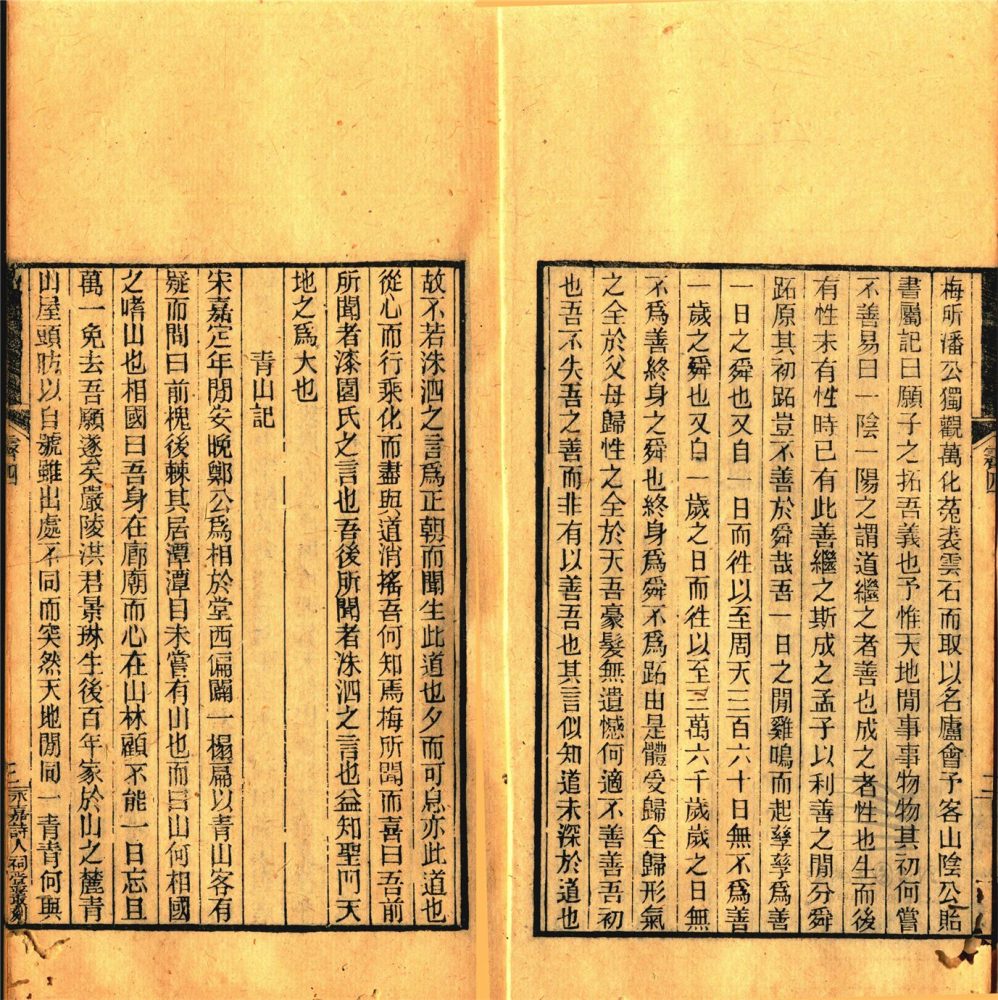 梅所潘公獨觀萬化菟裘雲石而取以名廬會予客山陰公貽
書屬記曰願子之拓吾義也予惟天地閒事事物物其初何嘗
不善易曰一陰一陽之謂道繼之者善也成之者性也生而後
有性未有性時已有此善繼之斯成之孟子以利善之閒分舜
跖原其初跖豈不善於舜哉吾一日之閒雞鳴而起孳孳為善
一日之舜也又自一日而徃以至周天三百六十日無不為善
一歲之舜也又自一歲之日而徃以至三萬六千歲歲之日無
不為善終身之舜也終身為舜不為跖由是體受歸全歸形氣
之全於父母歸性之全於天吾豪髮無遺憾何適不善善吾初
也吾不失吾之善而非有以善吾也其言似知道未深於道也
故不若洙泗之言爲正朝而聞生此道也夕而可息亦此道也
從心而行乘化而盡與道消搖吾何知焉梅所聞而喜曰吾前
所聞者漆園氏之言也吾後所聞者洙泗之言也益知聖門天
地之爲大也
青山記
宋嘉定年閒安晚鄭公爲相於堂西偏闢一榻扁以青山客有
疑而問曰前槐後棘其居潭潭目未嘗有山也而曰山何相國
之嗜山也相國曰吾身在廊廟而心在山林顧不能一日忘且
萬一免去吾願遂矣嚴陵洪君景琳生後百年家於山之麓青
山屋頭故以自號雖出處不同而突然天地閒同一青青何與
卷四
三
永嘉詩人祠堂叢刻